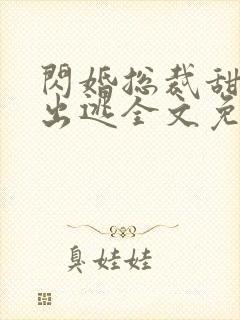 閃婚總裁甜
出逃全文免
臭娃娃